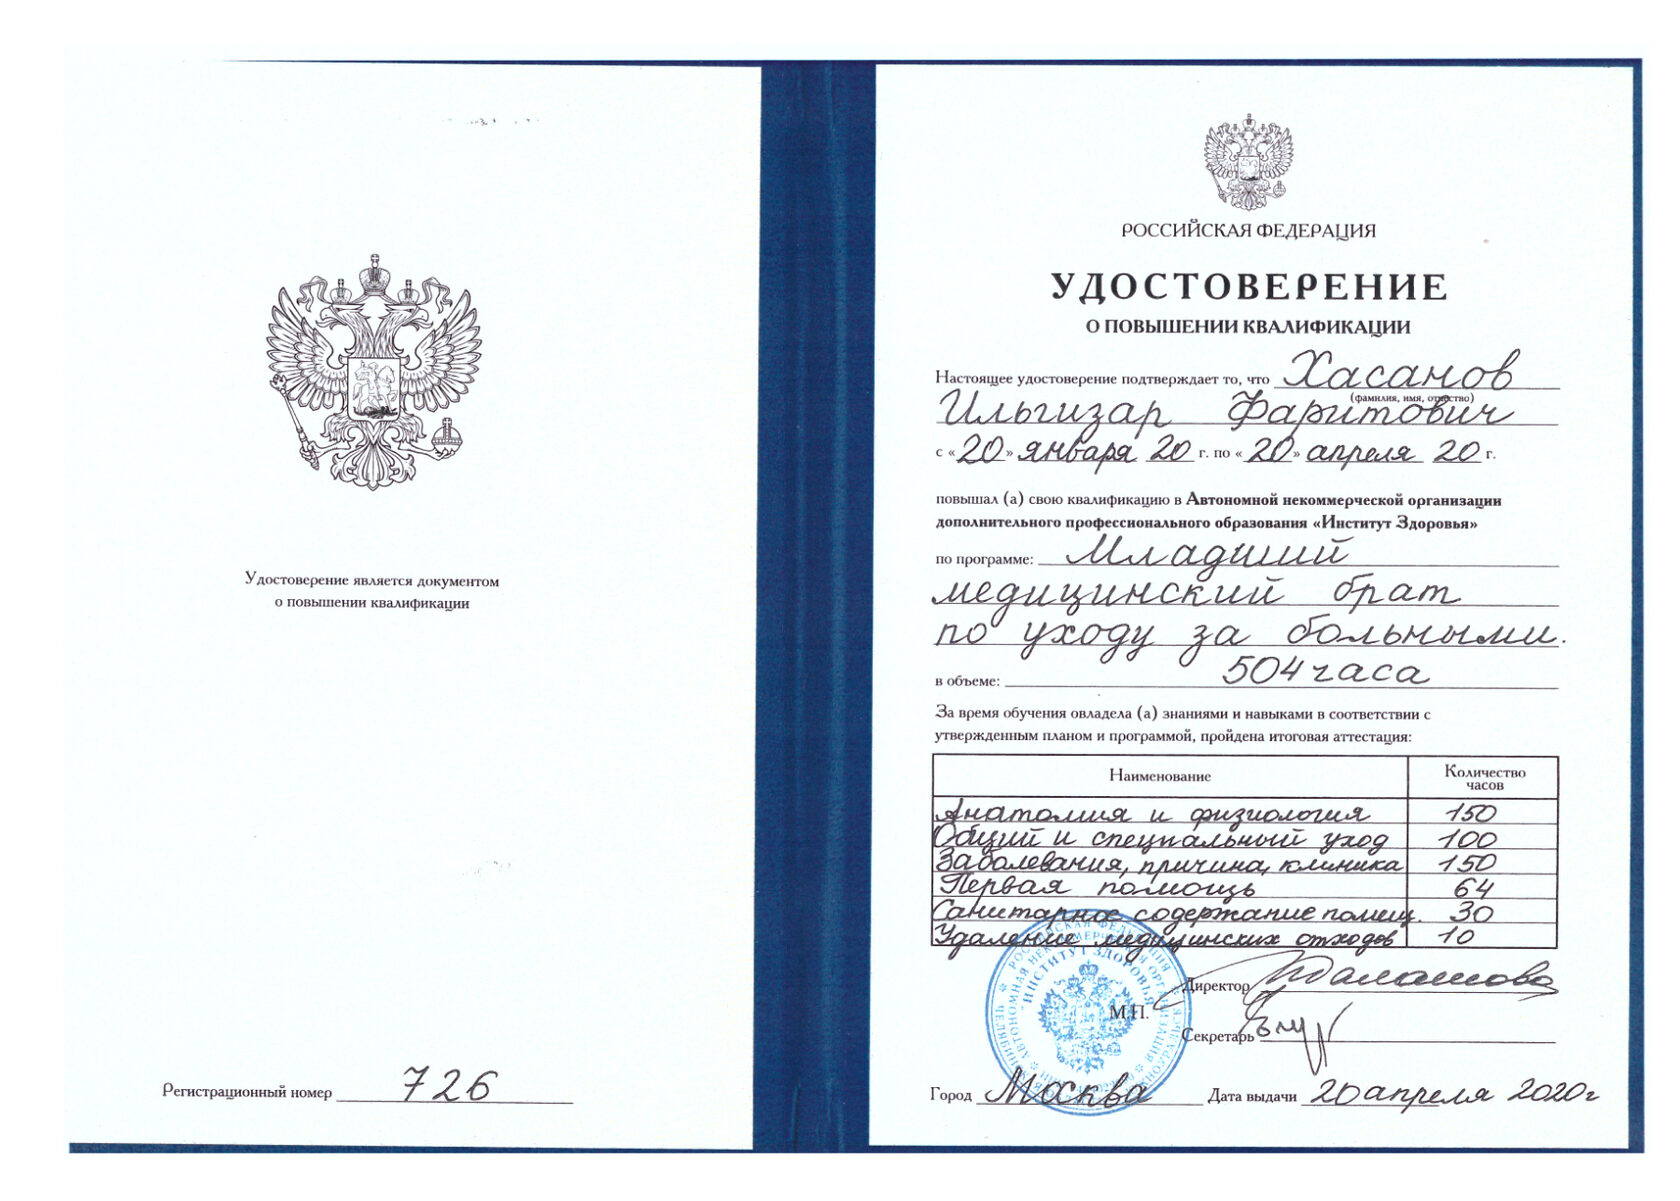 Удостоверение является документом
о повышении квалификации
Регистрационный номер 726
РОССИЙСКАЯ ФЕДЕРАЦИЯ
УДОСТОВЕРЕНИЕ
О ПОВЫШЕНИИ КВАЛИФИКАЦИИ
Настоящее удостоверение подтверждает то, что Хасанов
(фамилия, имя, отчество)
Ильгизар Фаритович
с «20» января 20 г. по «20» апреля 20 г.
повышал (а) свою квалификацию в Автономной некоммерческой организации
дополнительного профессионального образования «Институт Здоровья»
по программе: Младший
медицинский брат
по уходу за больными.
в объеме: 504 часа
За время обучения овладела (а) знаниями и навыками в соответствии с
утвержденным планом и программой, пройдена итоговая аттестация:
Наименование Количество часов
Анатомия и физиология 150
Общий и специальный уход 100
Заболевания, причина, клиника 150
Первая помощь 64
Санитарное содержание помещ. 30
Удаление медицинских отходов 10
РОССИЙСКАЯ ФЕДЕРАЦИЯ
АВТОНОМНАЯ НЕКОММЕРЧЕСКАЯ ОРГАНИЗАЦИЯ
"ИНСТИТУТ ЗДОРОВЬЯ"
Директор
М.П.
Секретарь
Город Москва Дата выдачи 20 апреля 2020г